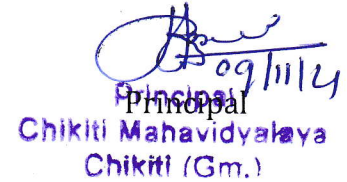 09/11/21
Principal
Principal
Chikiti Mahavidyalaya
Chikiti (Gm.)